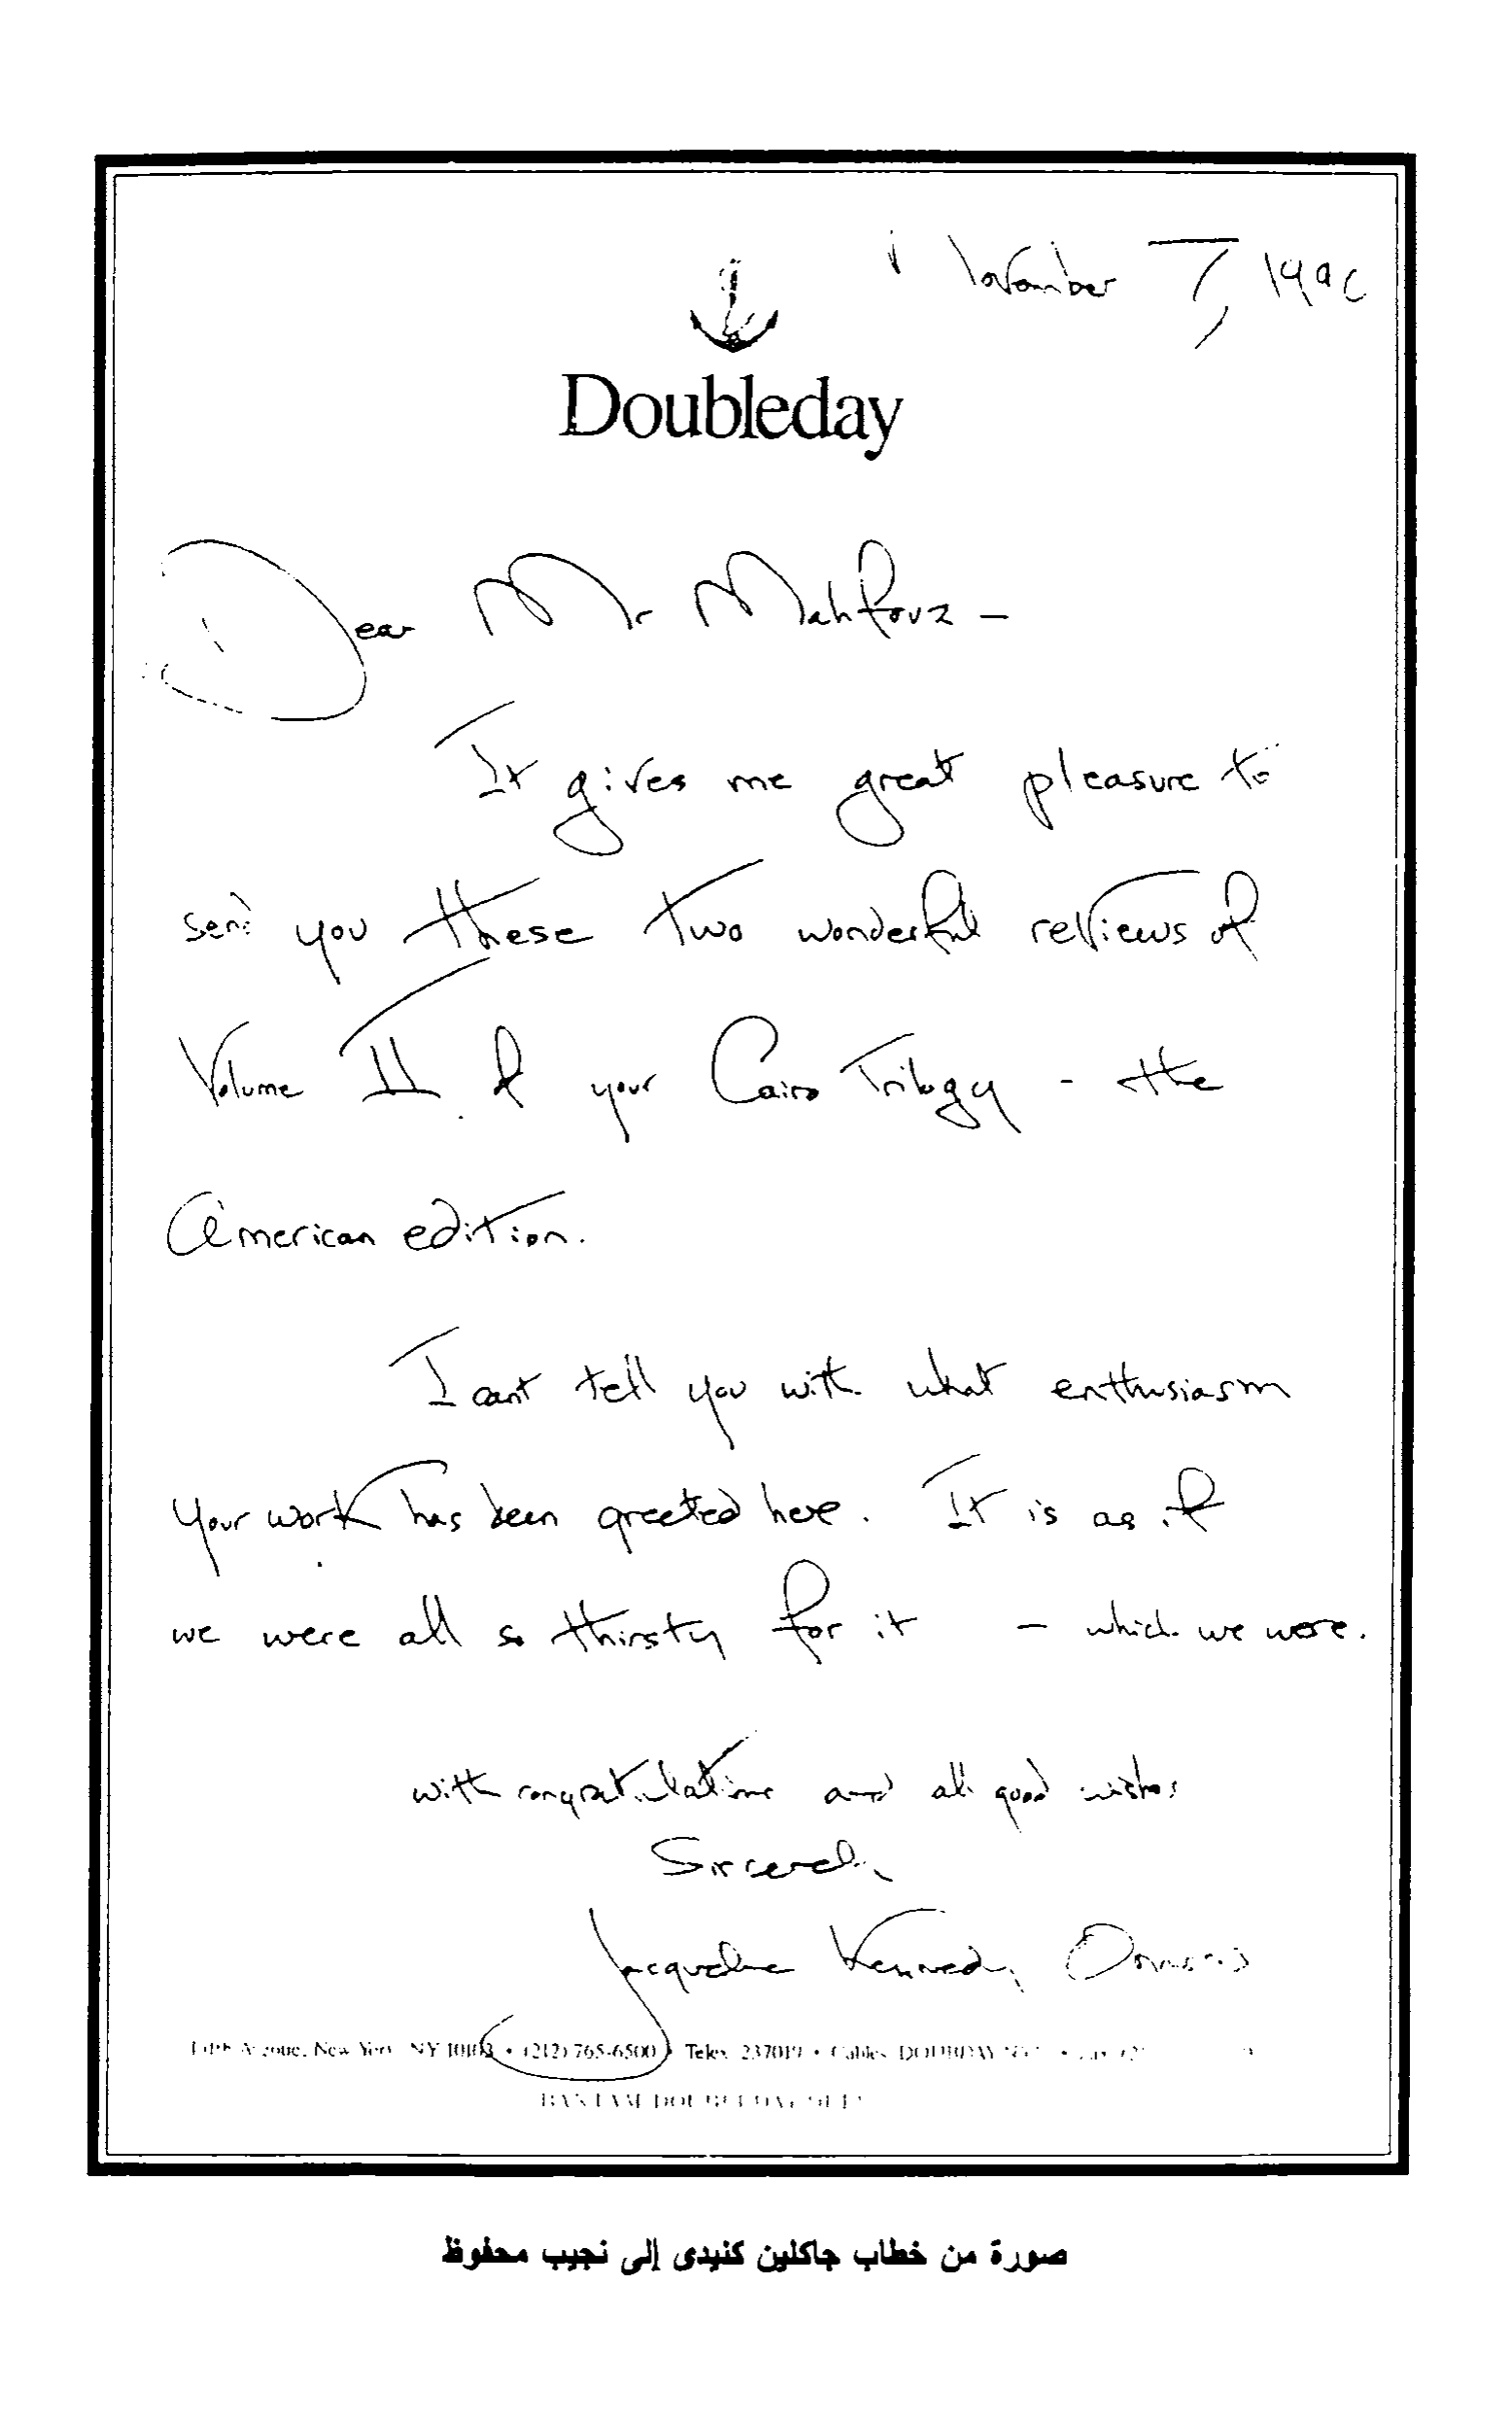 November 7, 1990
Doubleday
Dear Mr Mahfouz –
It gives me great pleasure to
send you these two wonderful reviews of
Volume II of your Cairo Trilogy - the
American edition.
I cant tell you with what enthusiasm
your work has been greeted here. It is as if
we were all so thirsty for it – which we were.
with congratulations and all good wishes
Sincerely,
Jacqueline Kennedy Onassis
Avenue, New York NY 10103 • (212) 765-6500 • Telex 237019 • Cables
BANTAM DOUBLEDAY DELL
صورة من خطاب جاكلين كنيدى إلى نجيب محفوظ